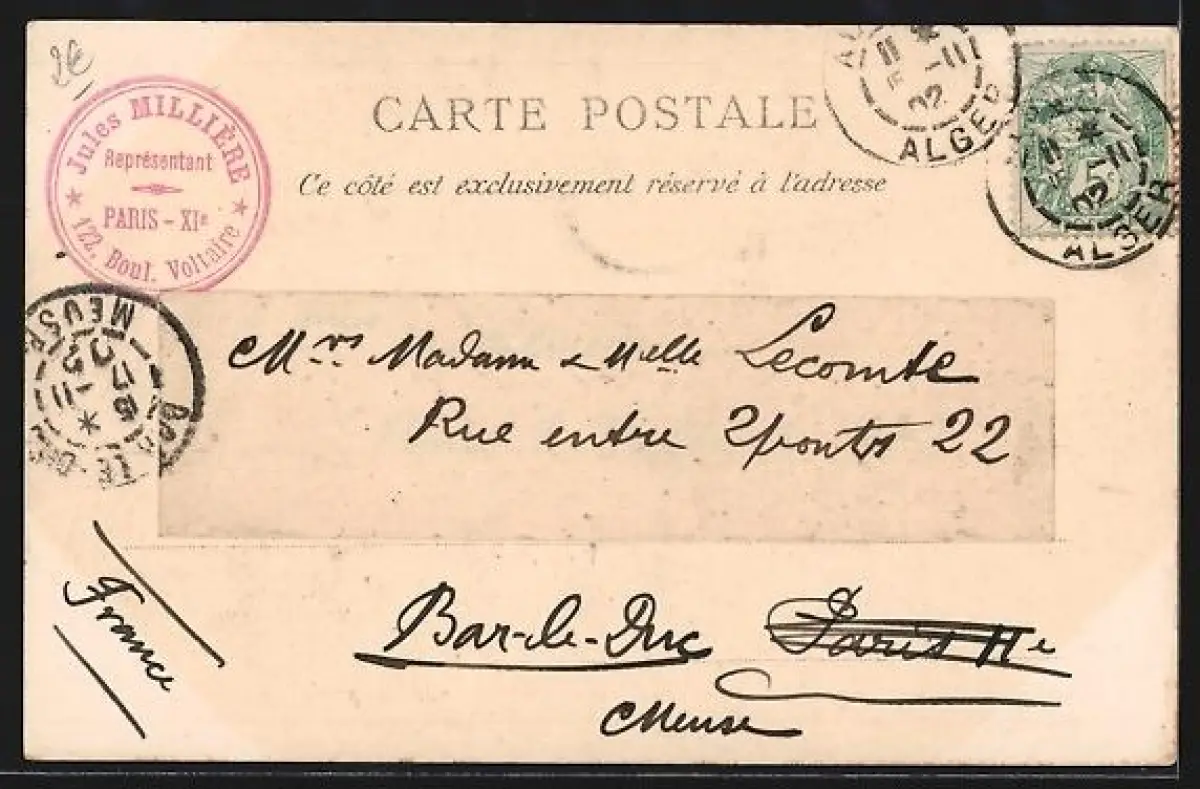 2€
Jules MILLIÈRE
Représentant
PARIS - XIe
122, Boul. Voltaire
CARTE POSTALE
Ce côté est exclusivement réservé à l'adresse
ALGER
11
5 -11
02
ALGER
11
-11
02
5
MEUSE
02
17 -11
5
BAR-LE-DUC
Mrs Madame & Melle Lecomte
Rue entre 2 ponts 22
France
Bar-le-Duc Paris XIe
Meuse